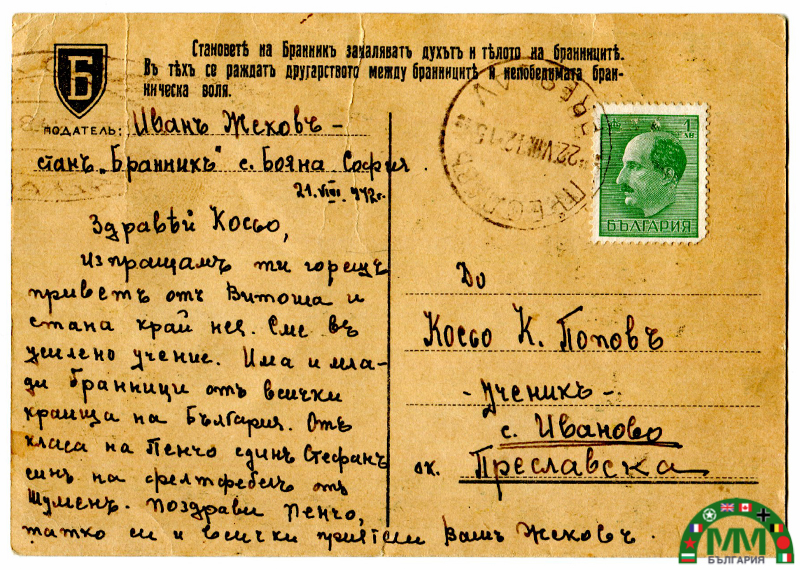 Становетѣ на Бранникъ закаляватъ духътъ и тѣлото на бранницитѣ.
Въ тѣхъ се раждатъ другарството между бранницитѣ и непобедимата бран-
ническа воля.
Б
ПОДАТЕЛЬ: Иванъ Жековъ -
станъ „Бранникъ" с. Бояна София
21.VIII.942г.
Здравѣй Косьо,
Изпращамъ ти горещъ
приветъ отъ Витоша и
стана край нея. Сме въ
усилено учение. Има и мла-
ди бранници отъ всички
краища на България. Отъ
класа на Пенчо единъ Стефанъ
синъ на фелтфебелъ отъ
Шуменъ. Поздрави Пенчо,
татко си и всички приятели Вашъ Жековъ.
1
ЛВ
БЪЛГАРИЯ
22.VIII.42-15
До
Косьо К. Поповъ
- Ученикъ -
с. Иваново
ок. Преславска
ММ
БЪЛГАРИЯ